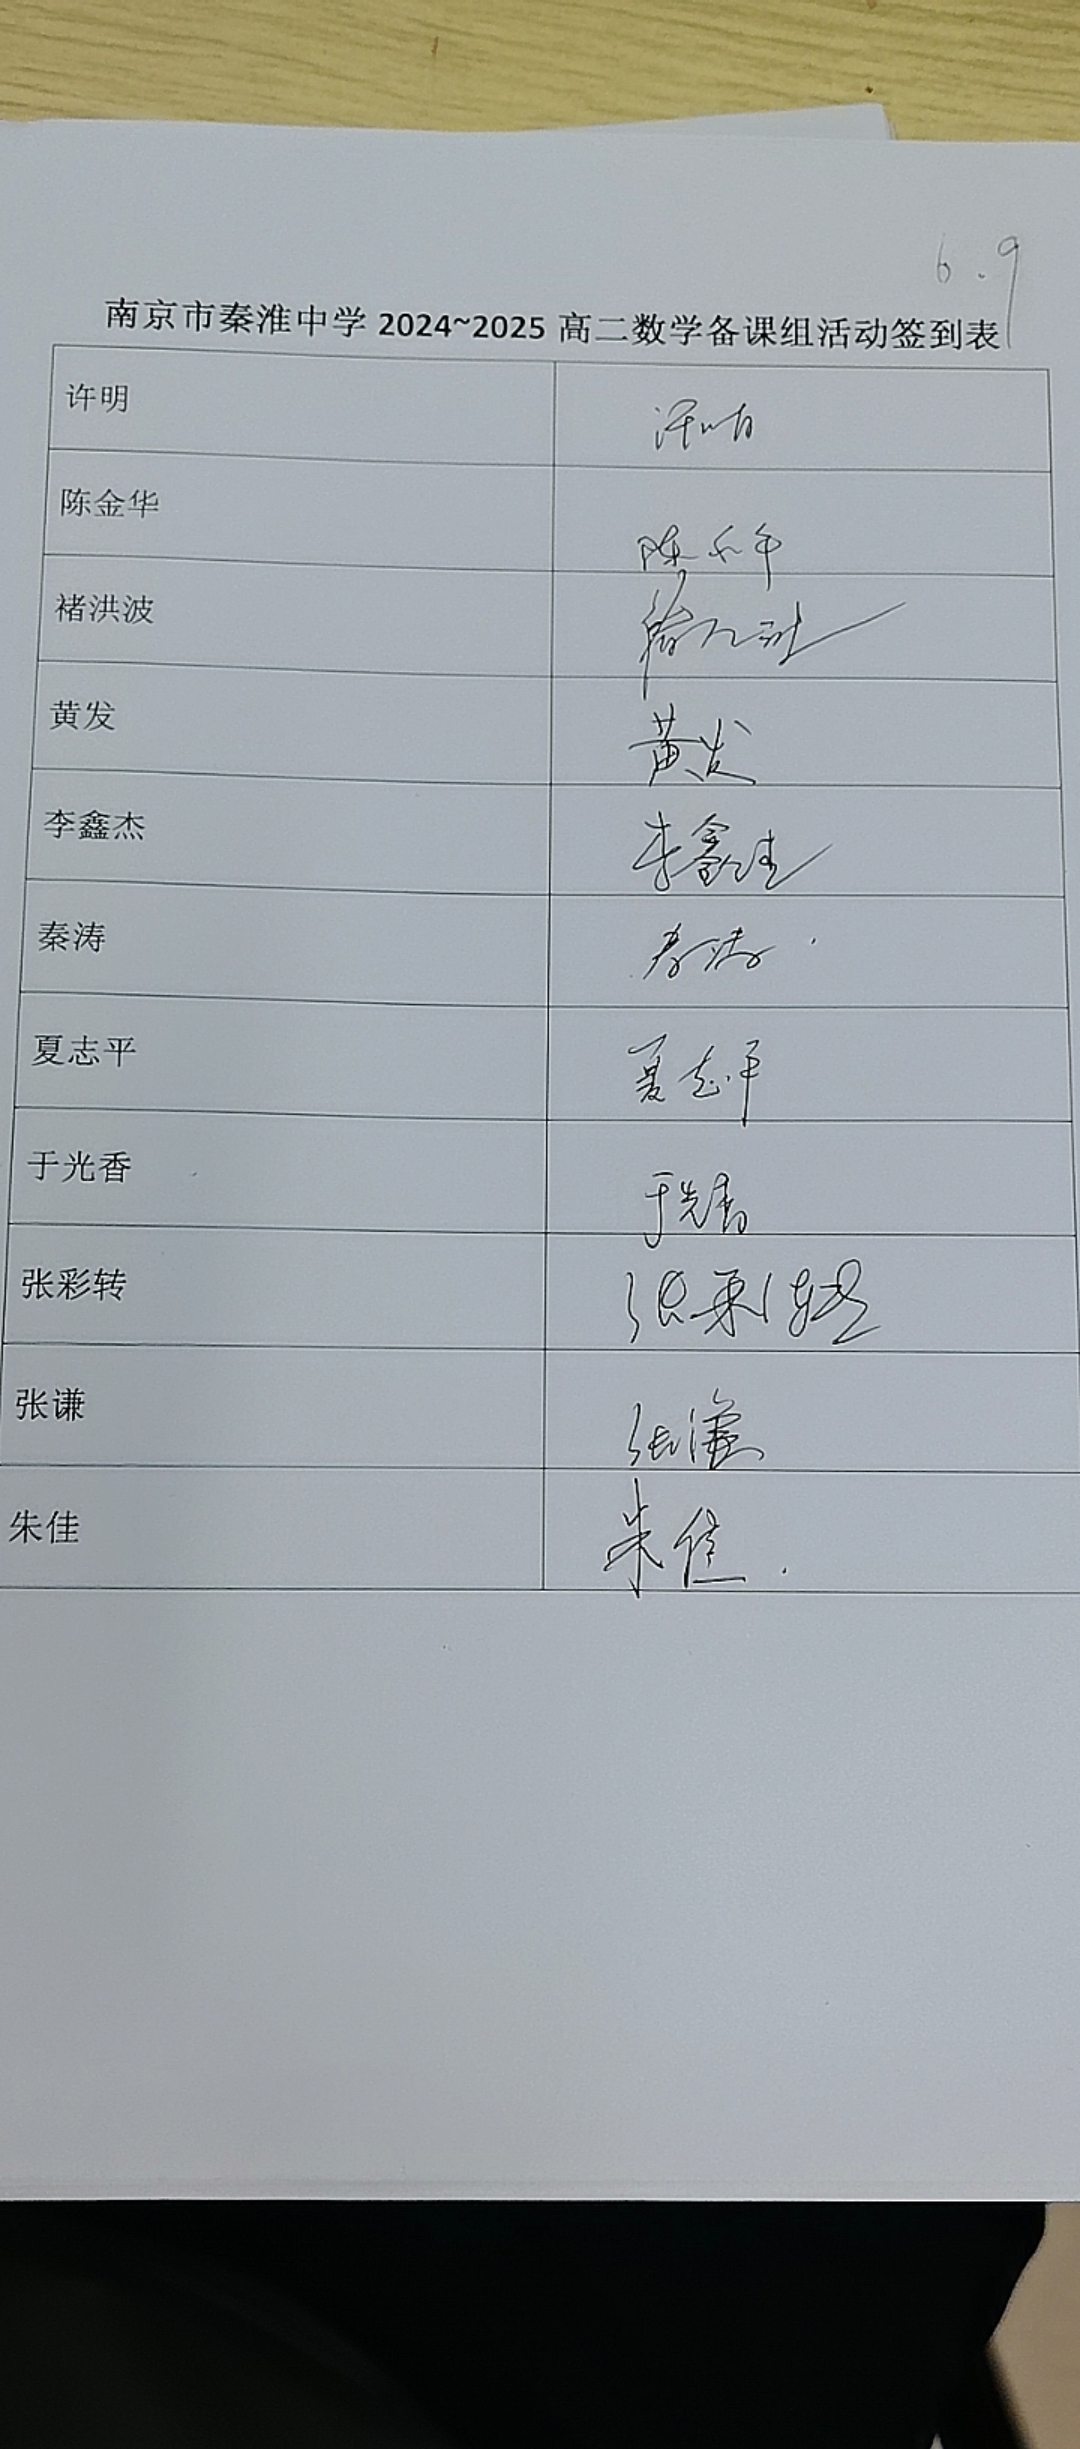 6.9
南京市秦淮中学 2024~2025 高二数学备课组活动签到表
许明 许明
陈金华 陈金华
褚洪波
黄发 黄发
李鑫杰 李鑫杰
秦涛 秦涛
夏志平 夏志平
于光香 于光香
张彩转 张彩转
张谦 张谦
朱佳 朱佳.